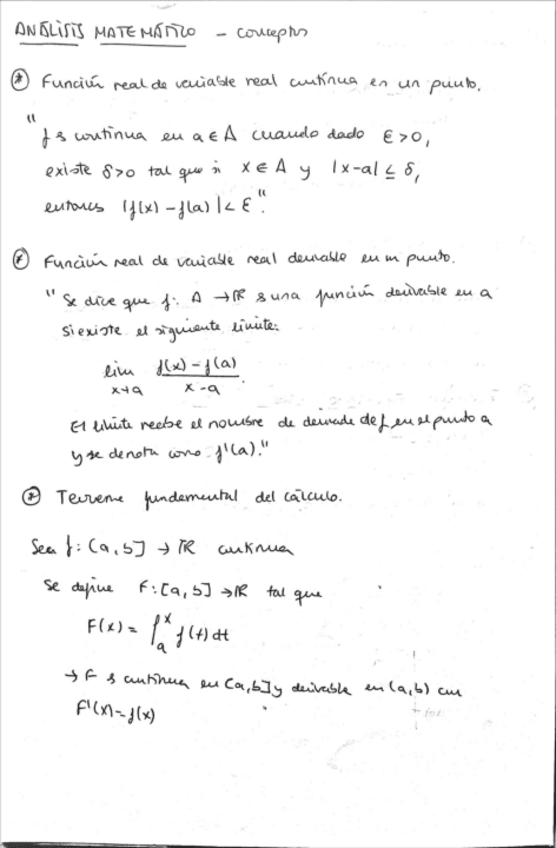 ANÁLISIS MATEMÁTICO - conceptos
* Función real de variable real continua en un punto.
"f es continua en a ∈ A cuando dado ε>0,
existe δ>0 tal que si x ∈ A y |x-a| ≤ δ,
entonces |f(x) - f(a)| < ε".
* Función real de variable real derivable en un punto.
"Se dice que f: A → ℝ es una función derivable en a
si existe el siguiente límite:
lim x→a (f(x) - f(a))/(x - a).
El límite recibe el nombre de derivada de f en el punto a
y se denota como f'(a)."
* Teorema fundamental del cálculo.
Sea f: [a,b] → ℝ continua
Se define F: [a,b] → ℝ tal que
F(x) = ∫_a^x f(t) dt
→ F es continua en [a,b] y derivable en (a,b) con
F'(x) = f(x)